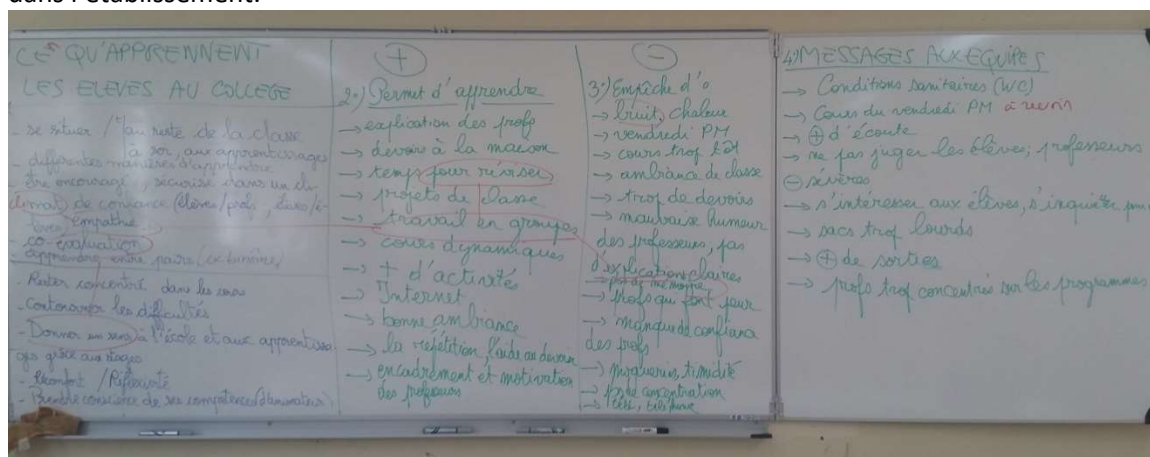 dans l'établissement.
CE QU'APPRENNENT
LES ELEVES AU COLLEGE
- se situer / au reste de la classe
à soi, aux apprentissages
- différentes manières d'apprendre
- être encouragé, sécurisé dans un cli-
climat de confiance (élèves/profs, élèves/é-
lèves) empathie
- co-évaluation
- apprendre entre pairs (ex binôme)
- Rester concentré dans les cours
- Contourner les difficultés
- Donner un sens à l'école et aux apprentissa
ges grâce aux stages
- Réconfort / Réflexivité
- Prendre conscience de ses compétences (d'animateur)
+
2°) Permet d'apprendre
→ explication des profs
→ devoir à la maison
→ temps pour réviser
→ projets de classe
→ travail en groupes
→ cours dynamiques
→ + d'activités
→ Internet
→ bonne ambiance
→ la répétition, l'aide au devoir
→ encadrement et motivation
des professeurs
-
3°) Empêche d'°
→ bruit, chaleur
→ vendredi PM
→ cours trop tôt
→ ambiance de classe
→ trop de devoirs
→ mauvaise humeur
des professeurs, pas
d'explications claires
→ pas de mémoire
→ profs qui font peur
→ manque de confiance
des profs
→ moqueries, timidité
→ concentration
→ téléphone
4°) MESSAGES AUX EQUIPES
→ Conditions sanitaires (WC)
→ Cours du vendredi PM à revoir
→ + d'écoute
→ ne pas juger les élèves; professeurs
- sévères
→ s'intéresser aux élèves, s'inquiéter pour
→ sacs trop lourds
→ + de sorties
→ profs trop concentrés sur les programmes